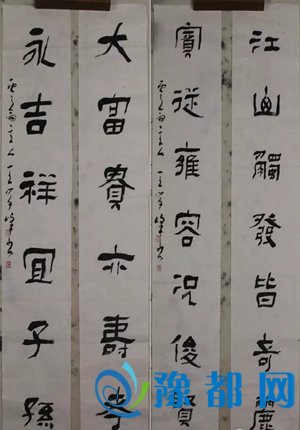 江山觸發皆奇麗
賓從雍容況俊賢
大富貴亦壽考
永吉祥宜子孫
豫都网